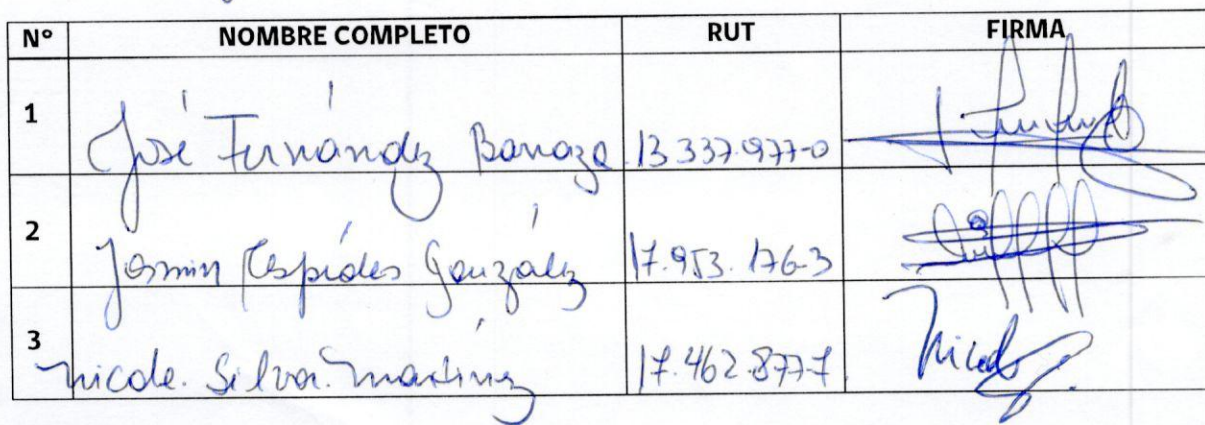 N° NOMBRE COMPLETO RUT FIRMA
1 José Fernández Baraza 13.337.977-0
2 Jasmin Céspides González 17.953.176-3
3 Nicole Silva Martínez 17.462.877-7 Nicole